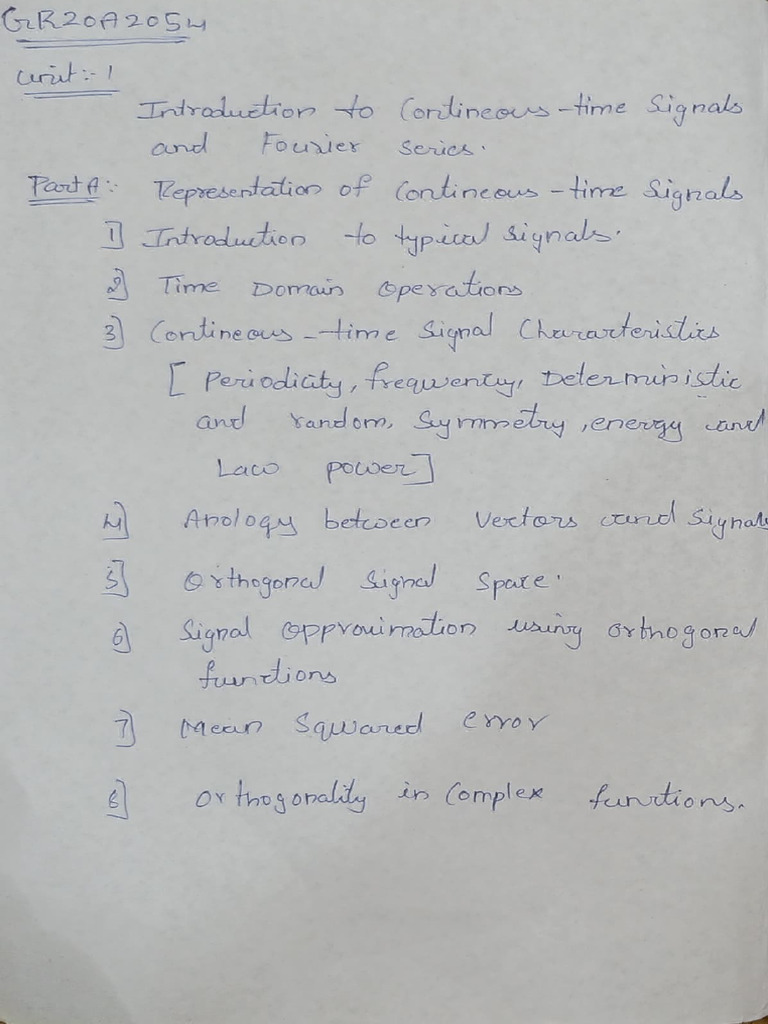 GR20A2054
Unit :- 1
Introduction to Contineous-time Signals
and Fourier Series.
Part A :- Representation of Contineous-time Signals
1] Introduction to typical signals.
2] Time Domain Operations
3] Contineous-time Signal Characteristics
[ Periodicity, frequency, Deterministic
and random, Symmetry, energy and
Law power]
4] Anology between Vectors and Signals
5] Orthogonal Signal Space.
6] Signal Approximation using orthogonal
functions
7] Mean Squared error
8] Orthogonality in Complex functions.